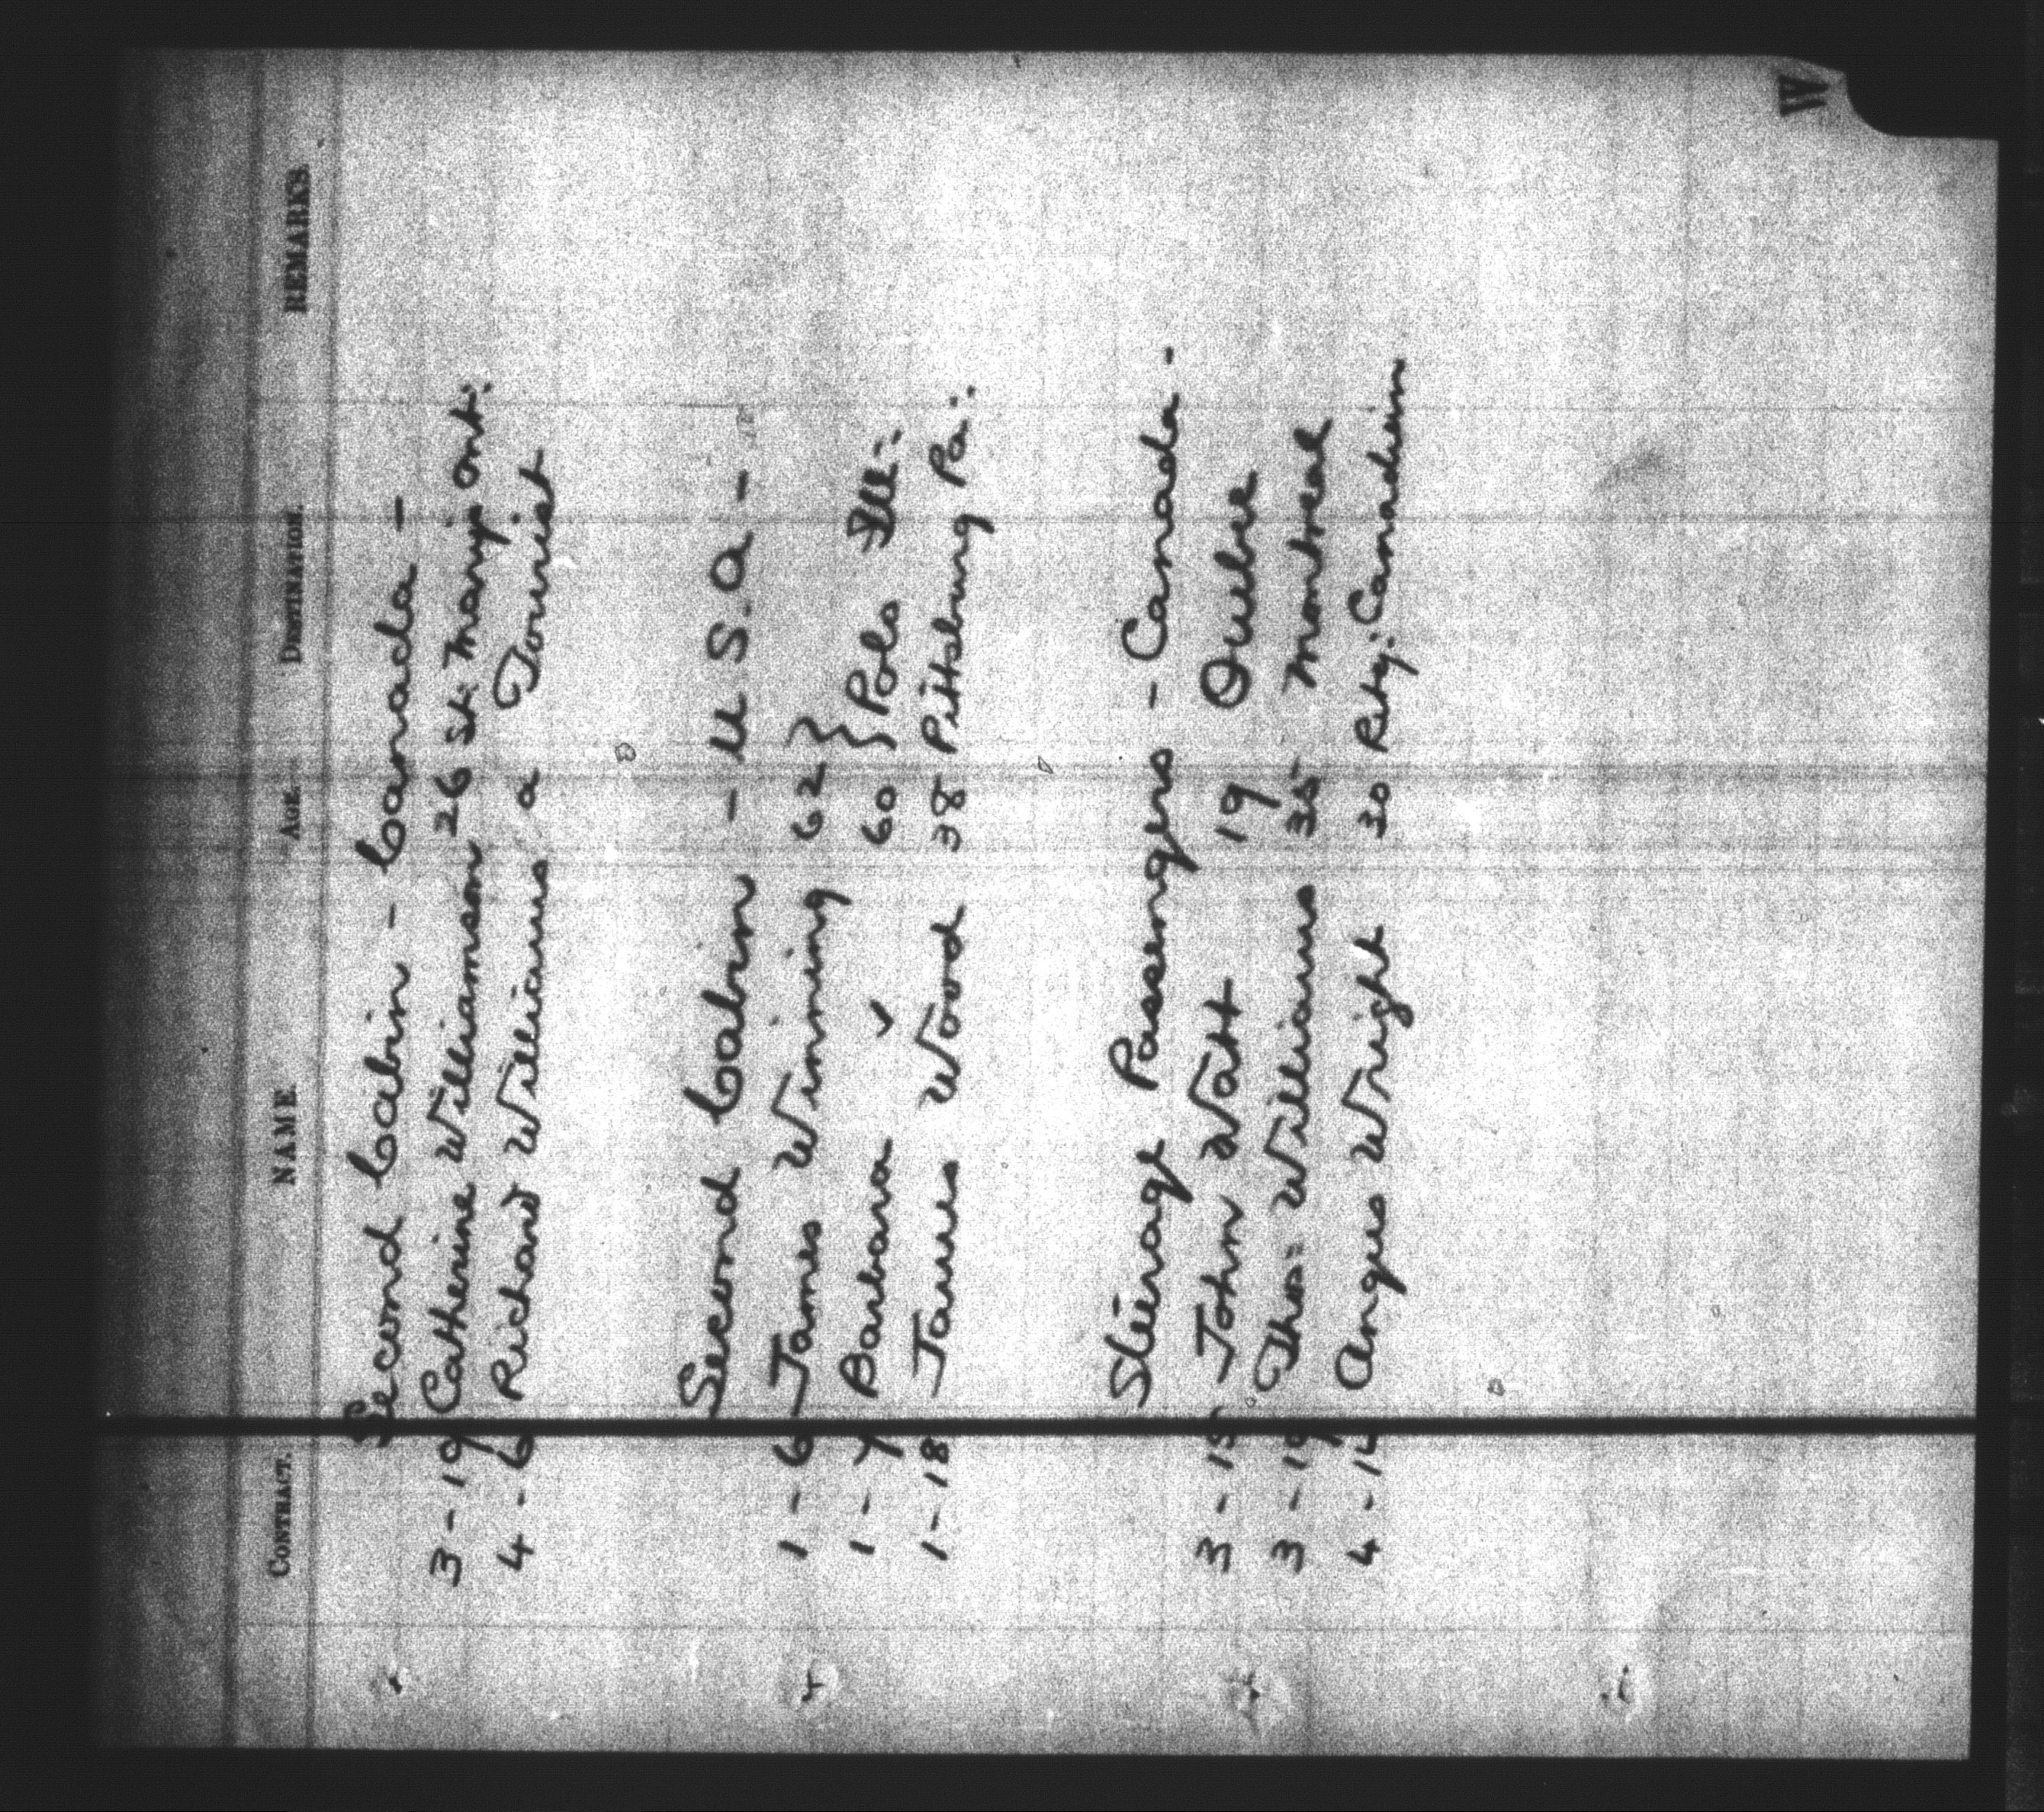 W
CONTRACT. NAME. AGE. DESTINATION. REMARKS.
Second Cabin - Canada -
3-19 Catherine Williamson 26 St. Marys Ont:
4-6 Richard Williams a Tourist
Second Cabin - U S. A -
1-6 James Winning 62 }
1-7 Barbara " 60 } Polo Ill:
1-18 James Wood 38 Pittsburg Pa:
Steerage Passengers - Canada -
3-15 John Watt 19 Quebec
3-19 Thos= Williams 35 Montreal
4-12 Angus Wright 30 Retg: Canadian